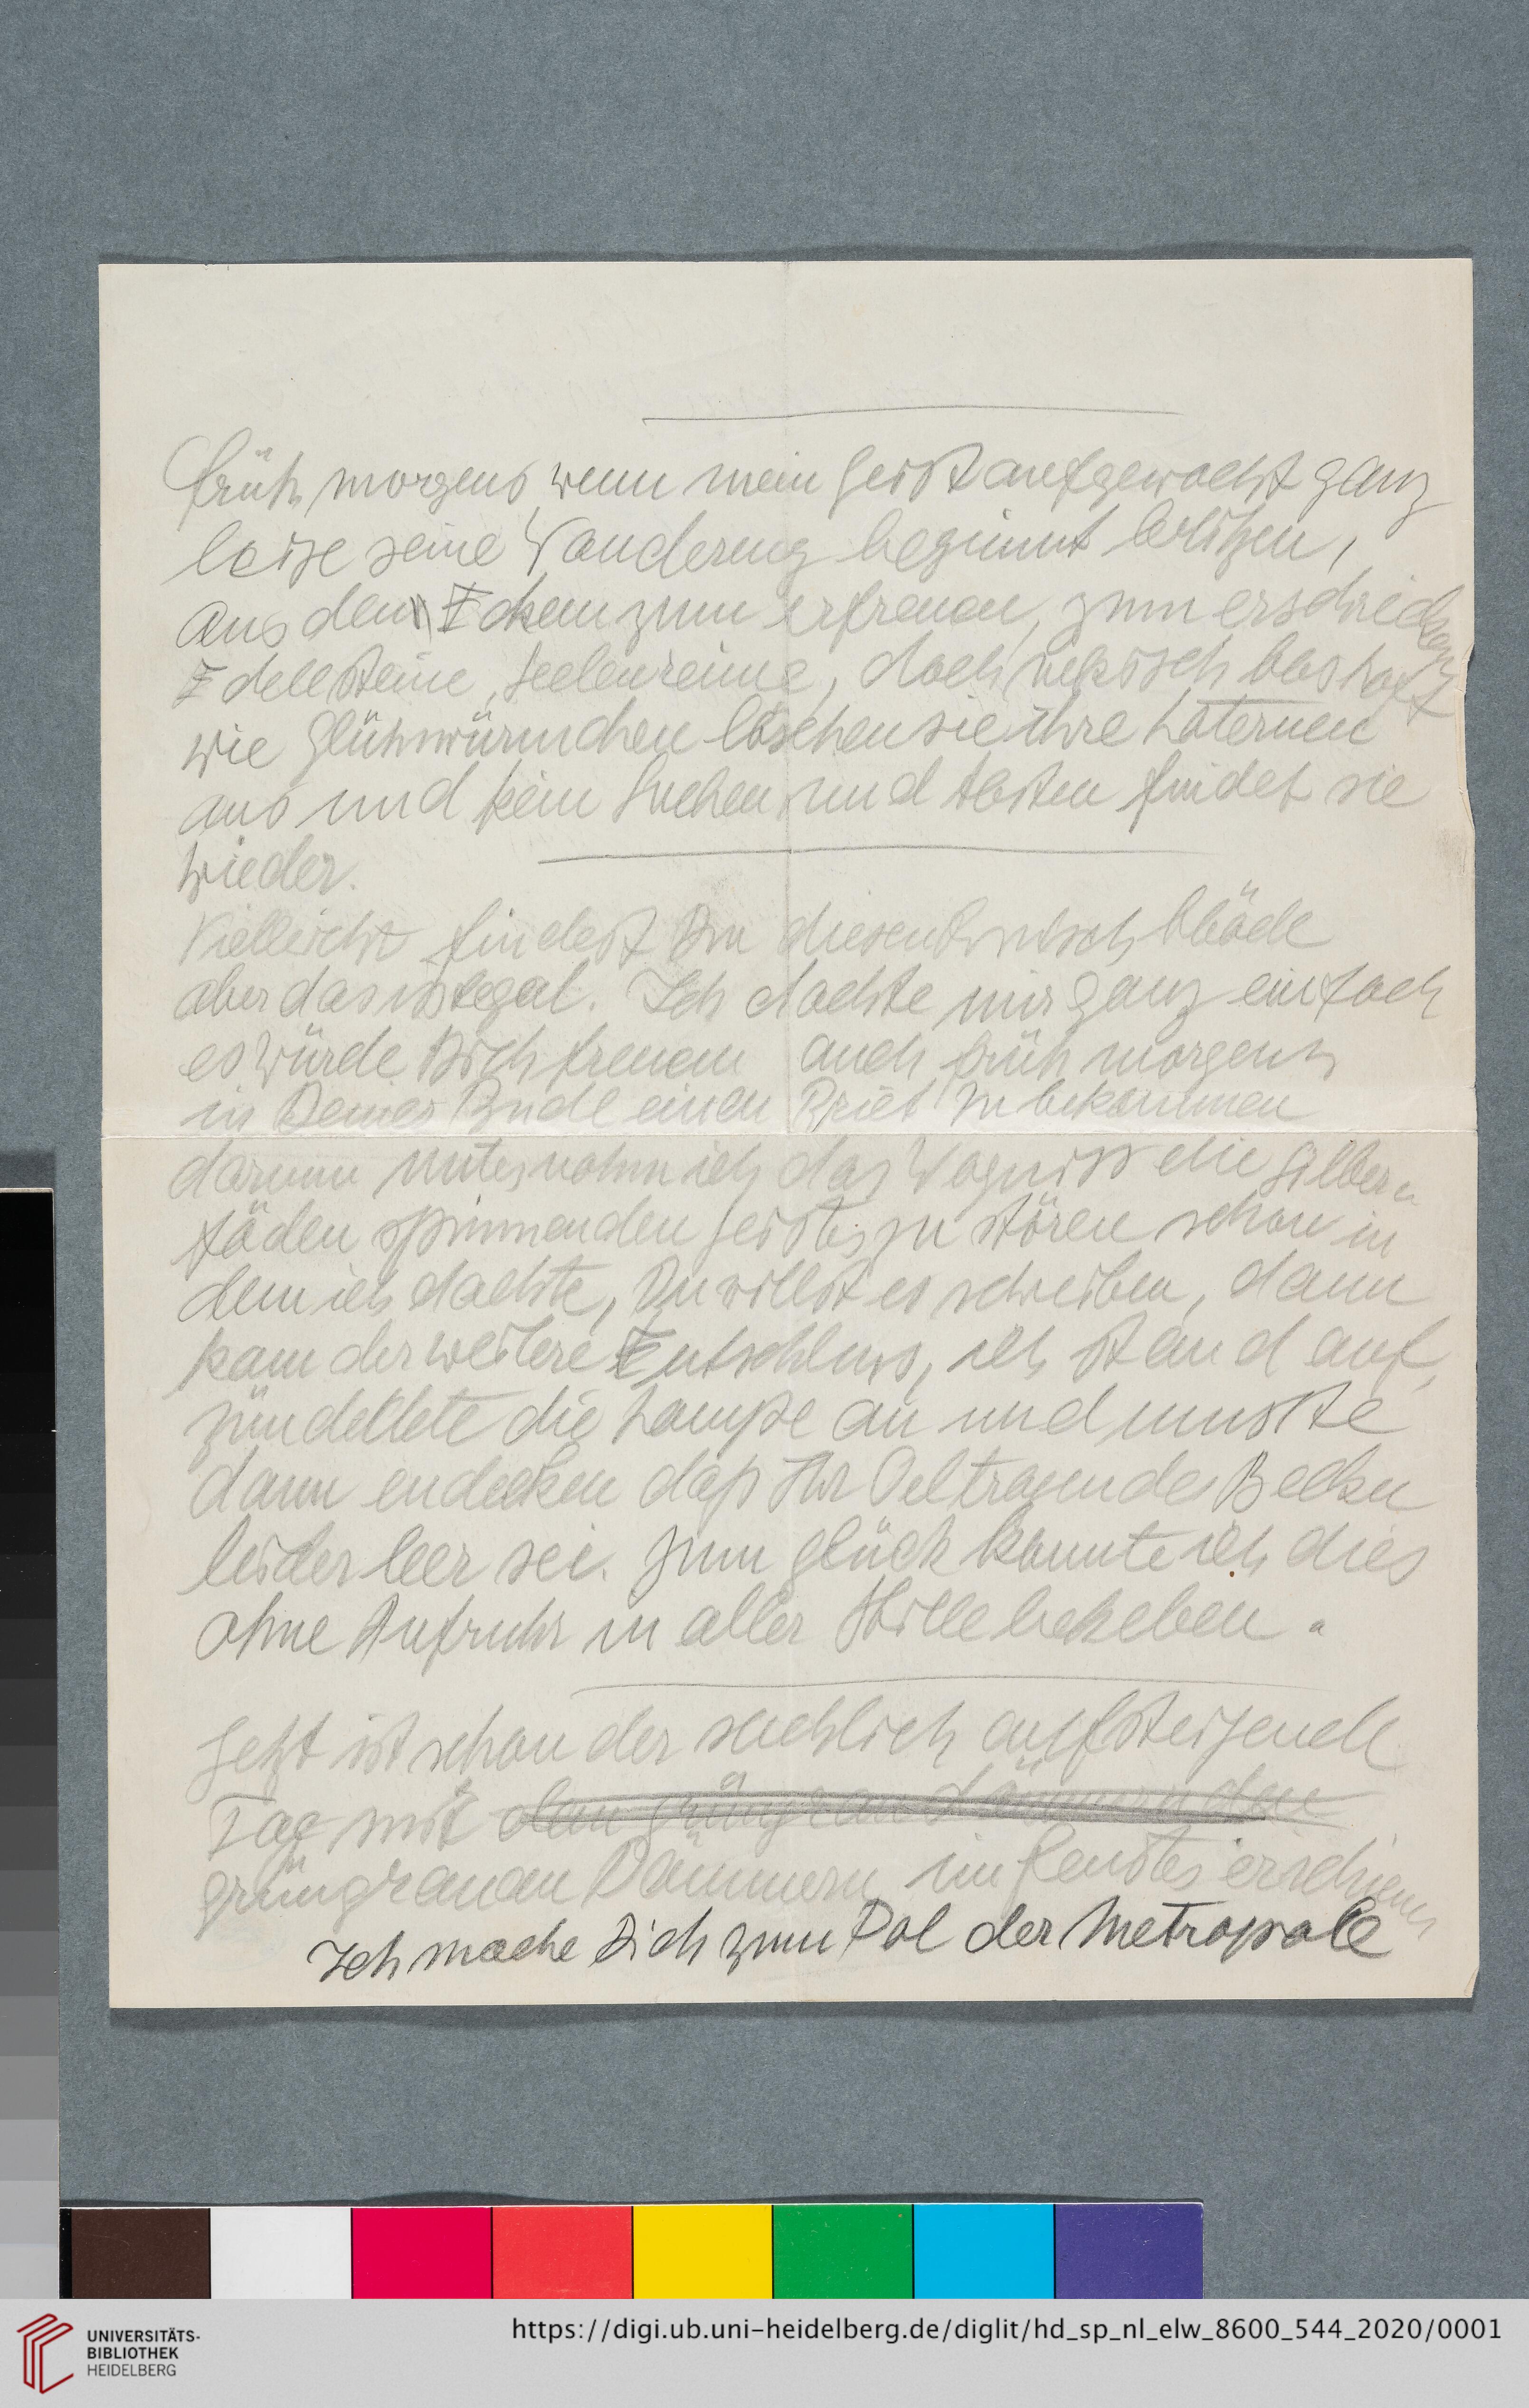 früh morgens, wenn mein Geist aufgewacht ganz
leise seine Wanderung beginnt blitzen,
aus den Ecken zum erfreuen, zum erschrecken
Edellsteine, Seelenreime, doch neksisch boshaft
wie Glühwürmchen löschen sie ihre Laternen
aus und kein Suchen und tasten findet sie
wieder.
Vielleicht findest Du diesen blöde
aber das ist egal. Ich dachte mir ganz einfach
es würde Dich freuen auch früh morgens
in Deiner Bude einen Brief zu bekommen
darum unternahm ich das Wagniss die Silber
fäden spinnenden Geistes zu stören schon in
dem ich dachte, Du willst es schreiben, dann
kam der weitere Entschluss, ich stand auf,
zündellete die Lampe an und musste
dann endecken daß Ihr Oeltragendes Becken
leider leer sei. Zum glück konnte ich dies
ohne Aufruhr in aller Stille beheben.
Jetzt ist schon der auffsteigende
Tag mit den grüngrau dämmernden
grüngrauen Dämmern im Fenster erschienen
Ich mache Dich zum Pol der Metropole
UNIVERSITÄTS-
BIBLIOTHEK
HEIDELBERG
https://digi.ub.uni-heidelberg.de/diglit/hd_sp_nl_elw_8600_544_2020/0001